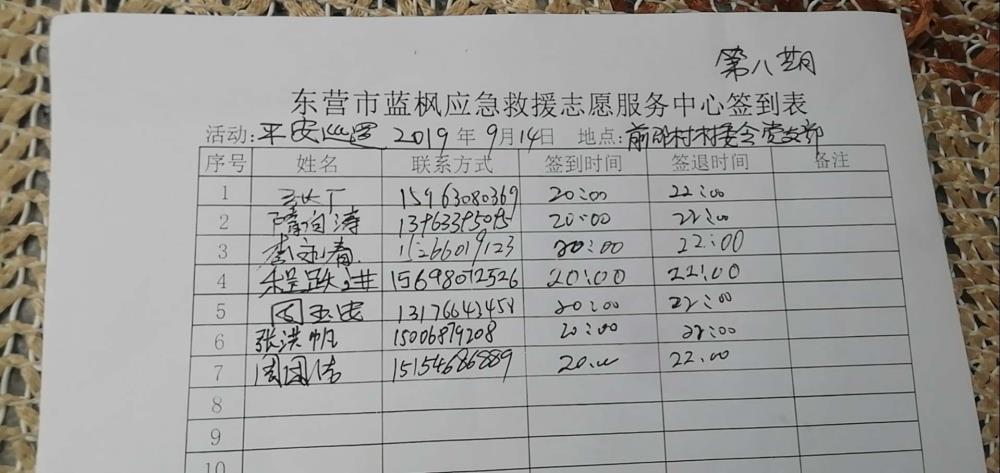 第八期
东营市蓝枫应急救援志愿服务中心签到表
活动:平安巡逻 2019年9月14日 地点:前 村村委会党支部
序号 姓名 联系方式 签到时间 签退时间 备注
1 15963080369 20:00 22:00
2 隋向涛 13963395095 20:00 22:00
3 李永春 15266019123 20:00 22:00
4 跃进 15698012526 20:00 22:00
5 周玉忠 13176643458 20:00 22:00
6 张洪帆 15006879208 20:00 22:00
7 周国浩 15154686889 20:00 22:00
8
9
10